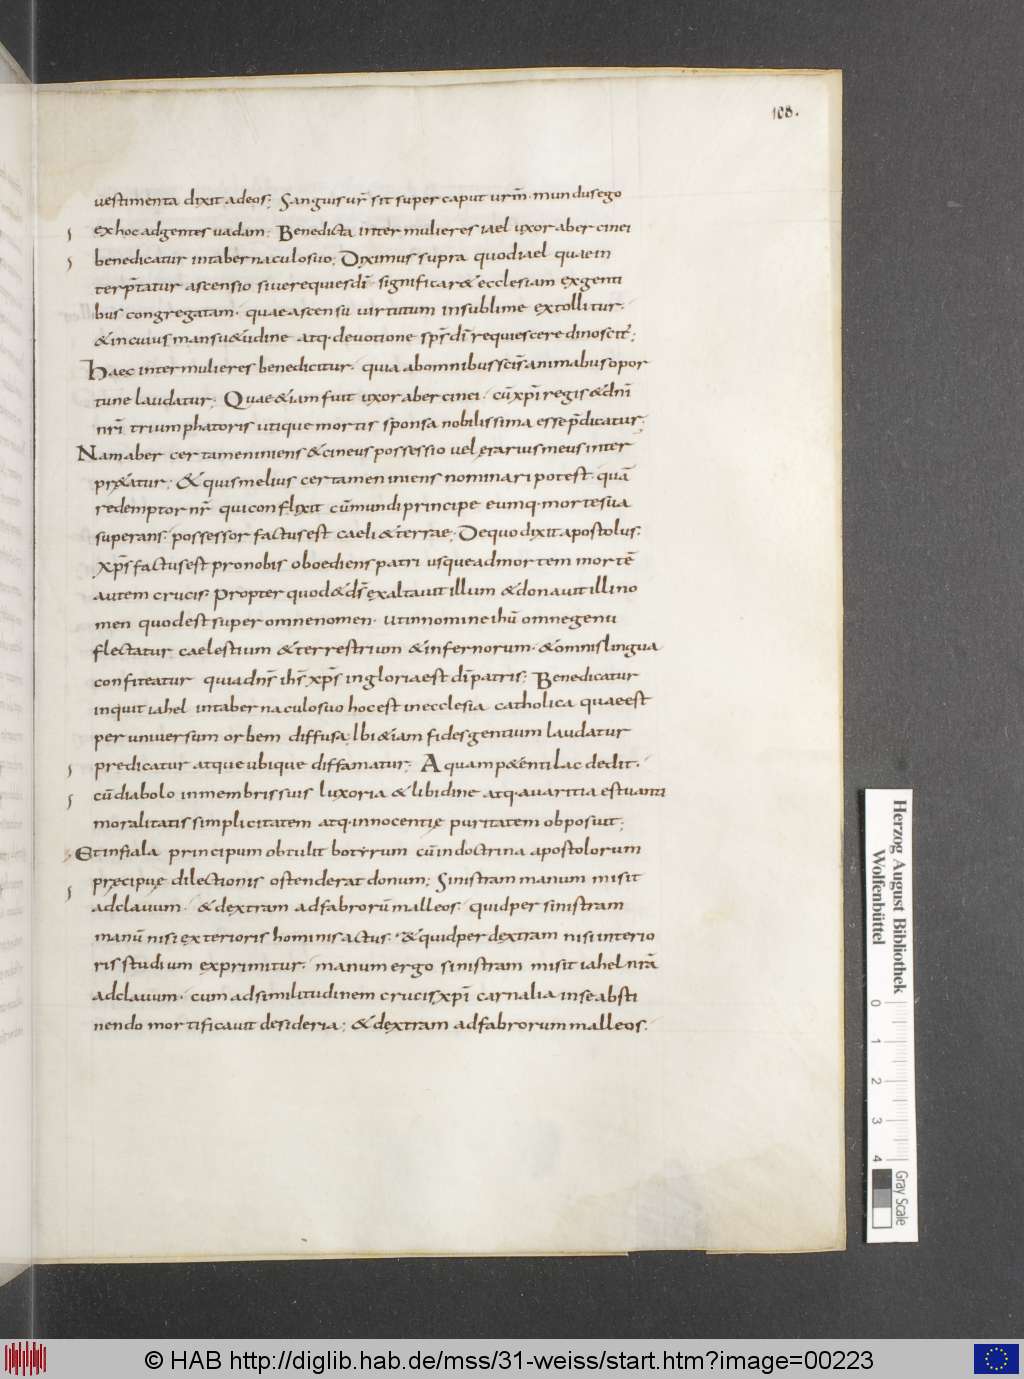 108.
vestimenta dixit ad eos; Sanguis ur̄ sit super caput urm̄· mundus ego
ex hoc ad gentes vadam; Benedicta inter mulieres iael uxor aber cinei
benedicatur in tabernaculo suo; Diximus supra quod iael quae in
terp̄tatur ascensio sive requies dī· significar& ecclesiam ex genti
bus congregatam· quae ascensu virtutum in sublime extollitur·
& in cuius mansu&udine atq· devotione sps̄ dī requiescere dinoscit̄;
Haec inter mulieres benedicitur· quia ab omnibus scīs animabus opor
tune laudatur; Quae &iam fuit uxor aber cinei· cū xpī regis & dn̄i
nrī triumphatoris utique mortis sponsa nobilissima esse p̄dicatur;
Nam aber certamen iniens & cineus possessio vel ęrarius meus inter
pr&atur; & quis melius certamen iniens nominari potest· quā
redemptor nr̄ qui conflixit cū mundi principe eumq· morte sua
superans· possessor factus est caeli & terrae; De quo dixit apostolus·
xps̄ factus est pro nobis oboediens patri usque ad mortem mortē
autem crucis· Propter quod & ds̄ exaltavit illum & donavit illi no
men quod est super omne nomen· ut in nomine ihū omne genu
flectatur caelestium & terrestrium & infernorum· & omnis lingua
confiteatur quia dns̄ ihs̄ xps̄ in gloria est dī patris; Benedicatur
inquit iahel in tabernaculo suo hoc est in ecclesia catholica quae est
per universum orbem diffusa, Ibi &iam fides gentium laudatur
predicatur atque ubique diffamatur; Aquam p&enti lac dedit·
cū diabolo in membris suis luxoria & libidine atq· avaritia estuanti
moralitatis simplicitatem atq· innocentię puritatem obposuit;
Et in fiala principum obtulit botyrum cū in doctrina apostolorum
pręcipuę dilectionis ostenderat donum; Sinistram manum misit
ad clavum· & dextram ad fabrorū malleos· quid per sinistram
manū nisi exterioris hominis actus· & quid per dextram nisi interio
ris studium exprimitur· manum ergo sinistram misit iahel nrā
ad clavum· cum ad similitudinem crucis xpī carnalia in se absti
nendo mortificavit desideria; & dextram ad fabrorum malleos·
Herzog August Bibliothek
Wolfenbüttel
0 1 2 3 4
Gray Scale
© HAB http://diglib.hab.de/mss/31-weiss/start.htm?image=00223